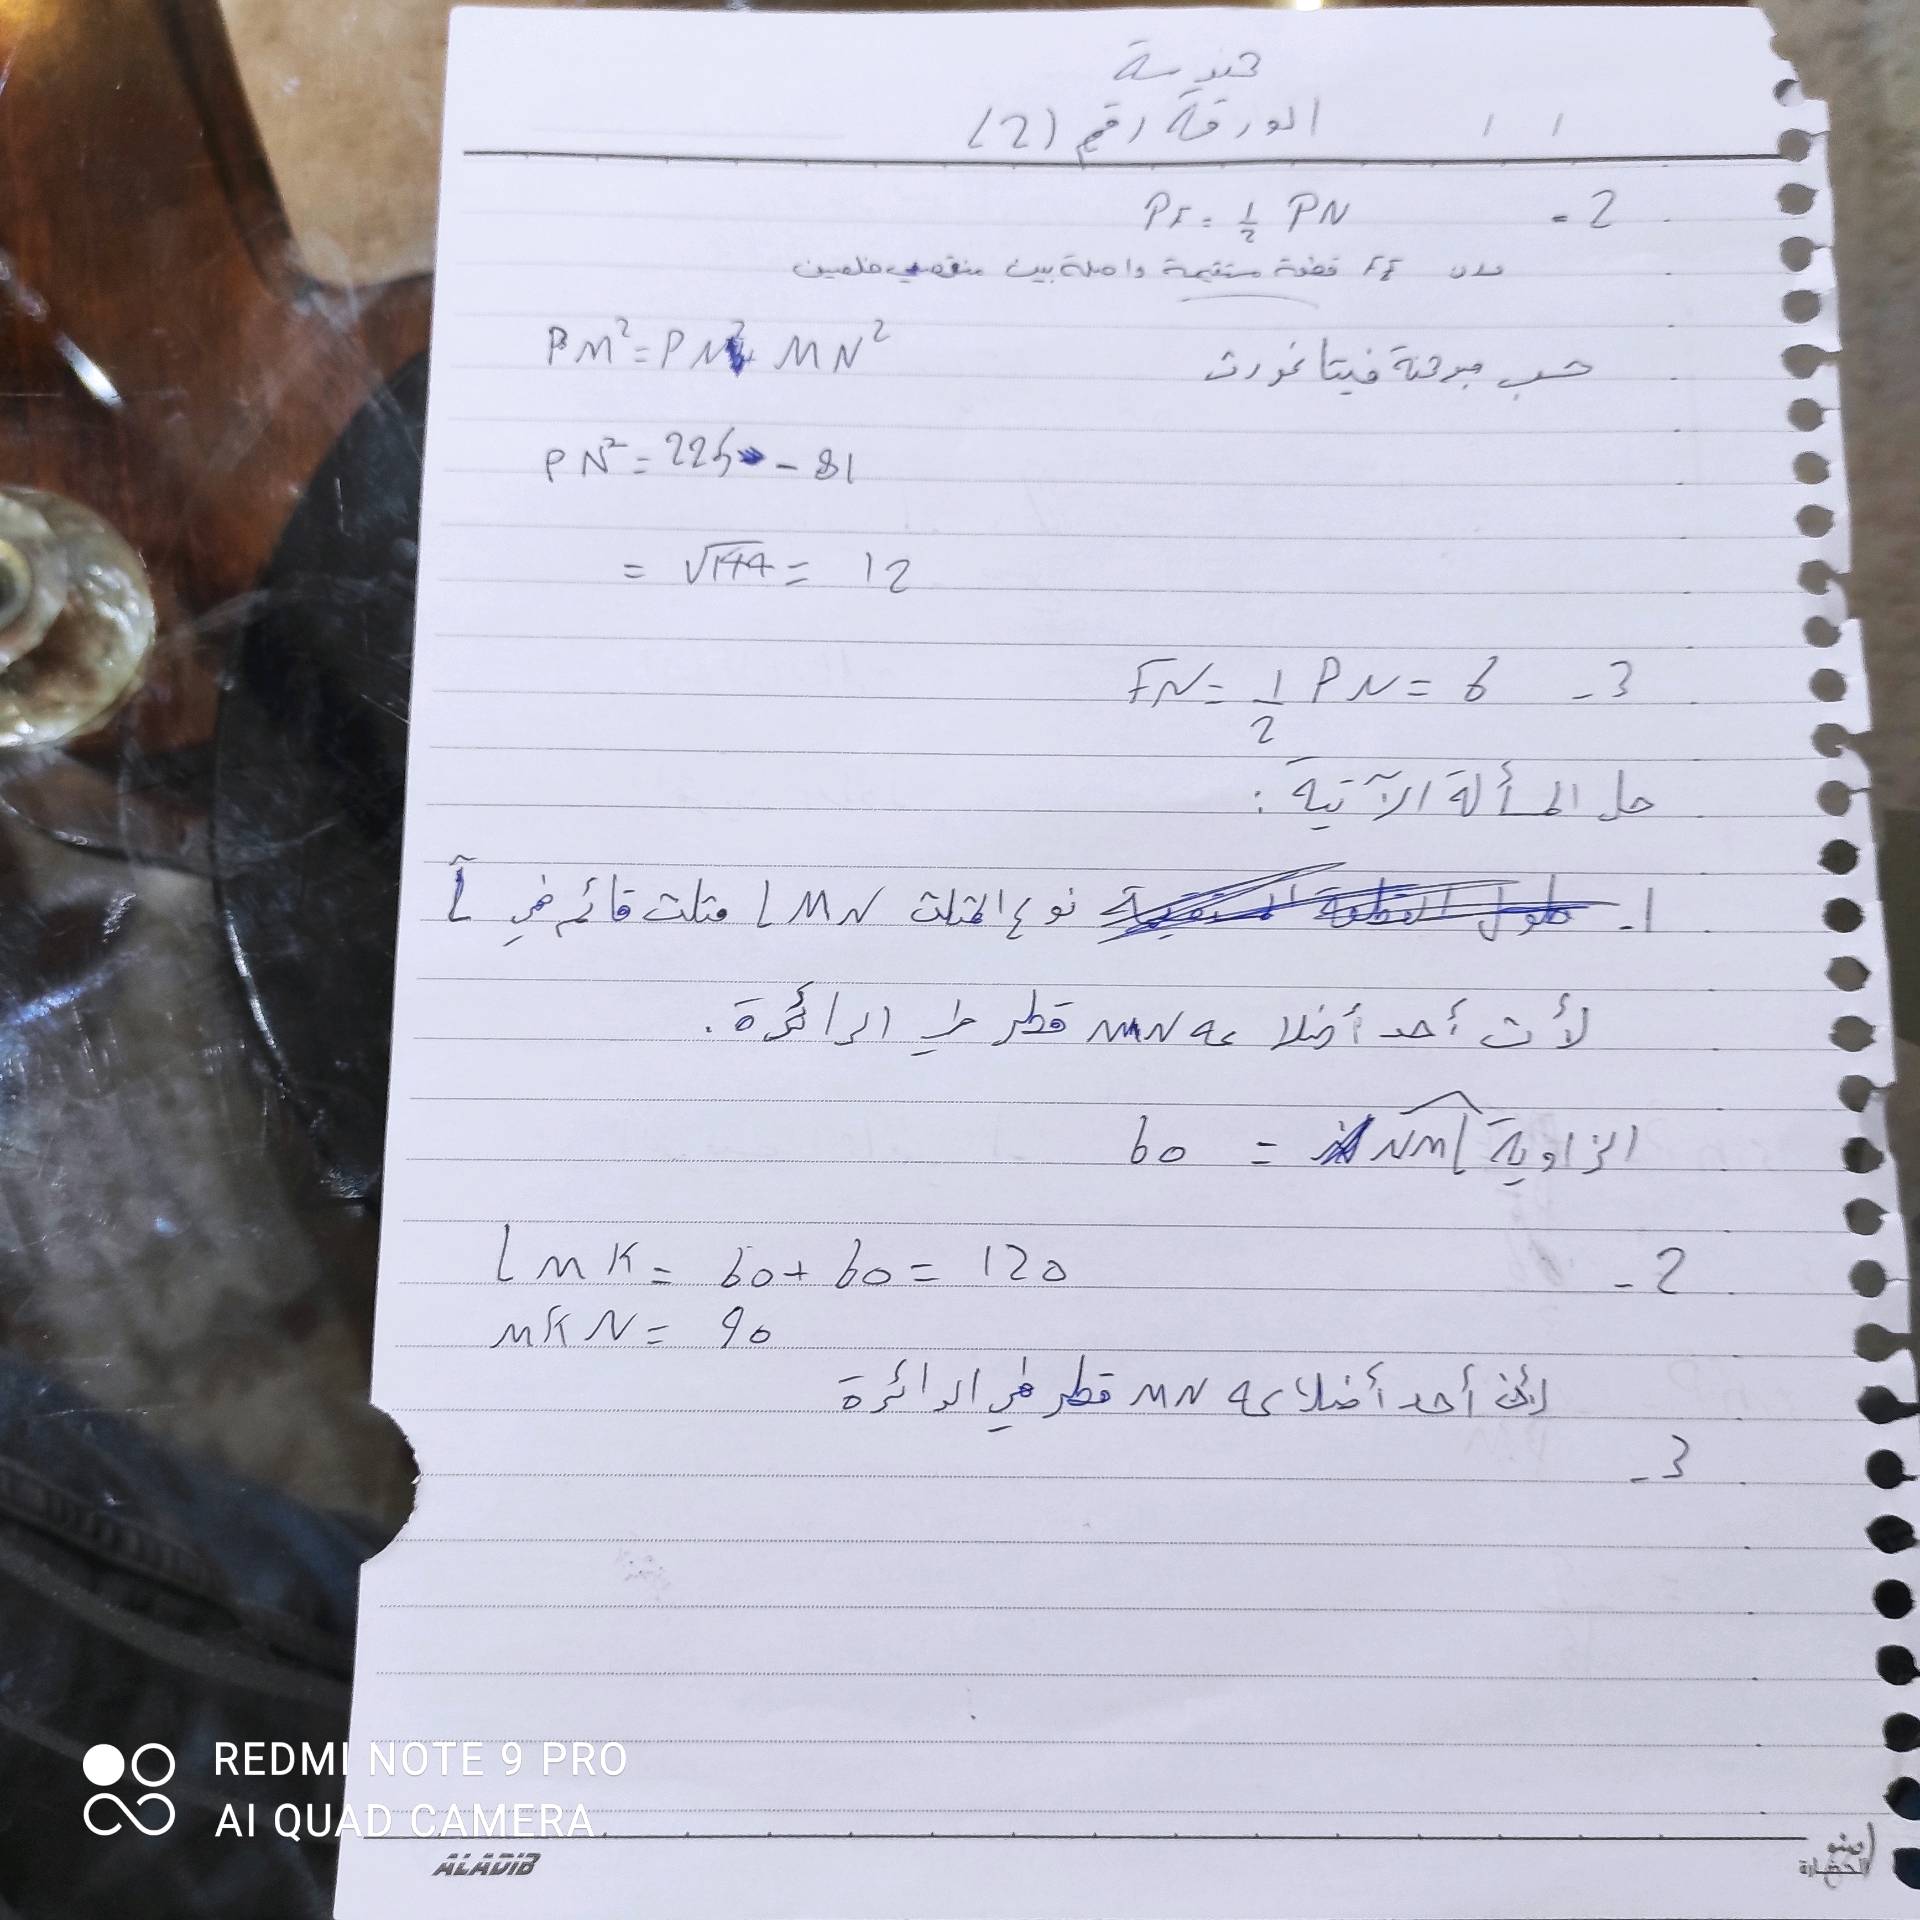 هندسة
الورقة رقم (2)
2 - PF = 1/2 PN
FE قطعة مستقيمة واصلة بين منتصفي ضلعين
حسب مبرهنة فيثاغورث PM² = PN² + MN²
PN² = 225 - 81
= √144 = 12
3 - FN = 1/2 PN = 6
حل المسألة الآتية :
1 - نوع المثلث LMN مثلث قائم في L
لأن أحد أضلاعه MN قطر في الدائرة .
الزاوية NML = 60
2 - LMK = 60 + 60 = 120
MKN = 90
لأن أحد أضلاعه MN قطر في الدائرة
3 -
REDMI NOTE 9 PRO
AI QUAD CAMERA
ALADIB
الحضارة